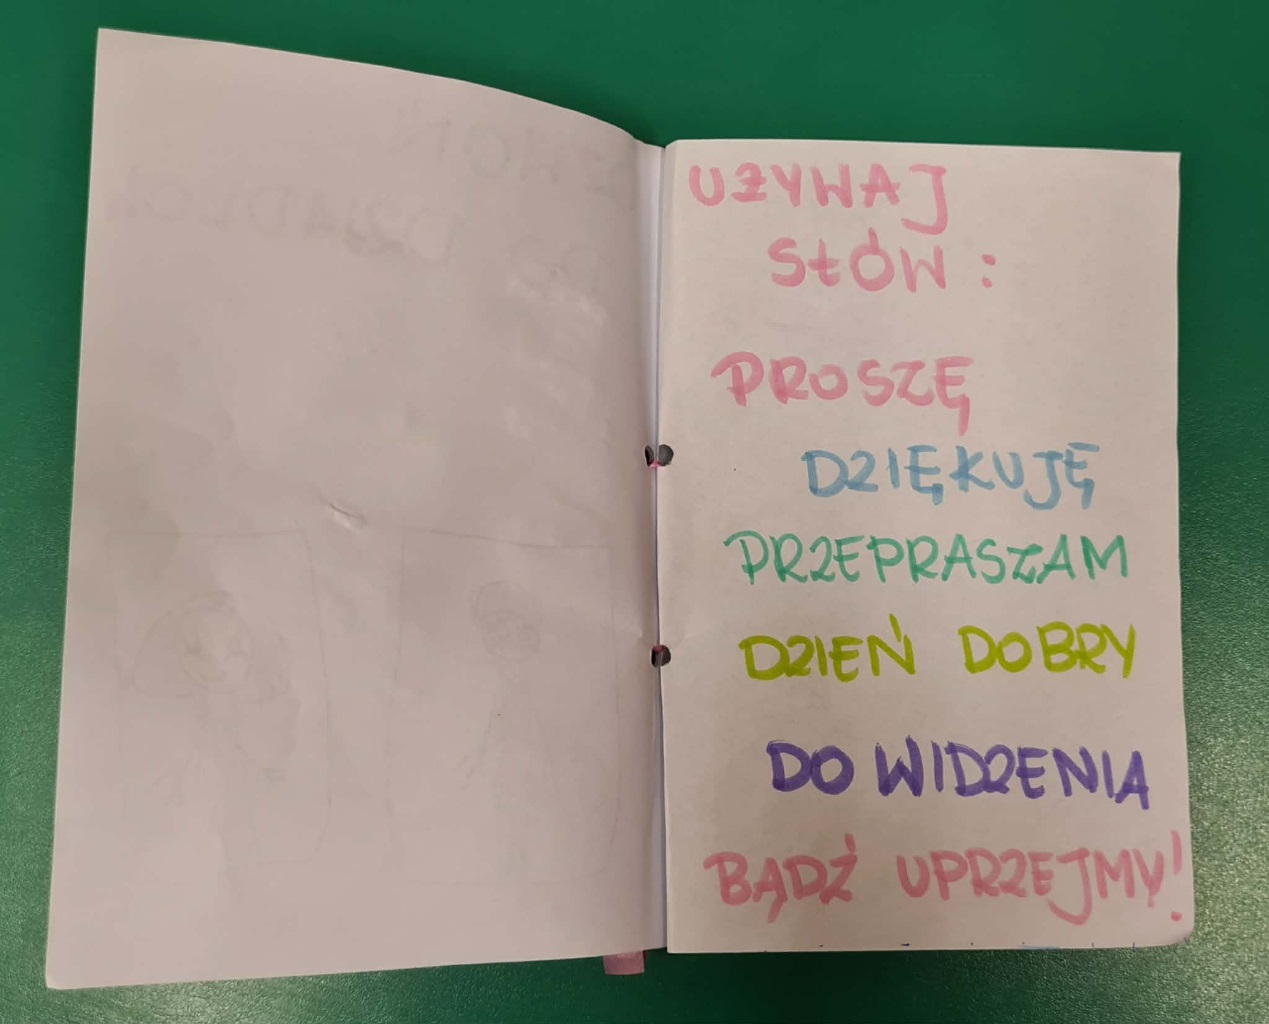 UŻYWAJ
SŁÓW:
PROSZĘ
DZIĘKUJĘ
PRZEPRASZAM
DZIEŃ DOBRY
DO WIDZENIA
BĄDŹ UPRZEJMY!